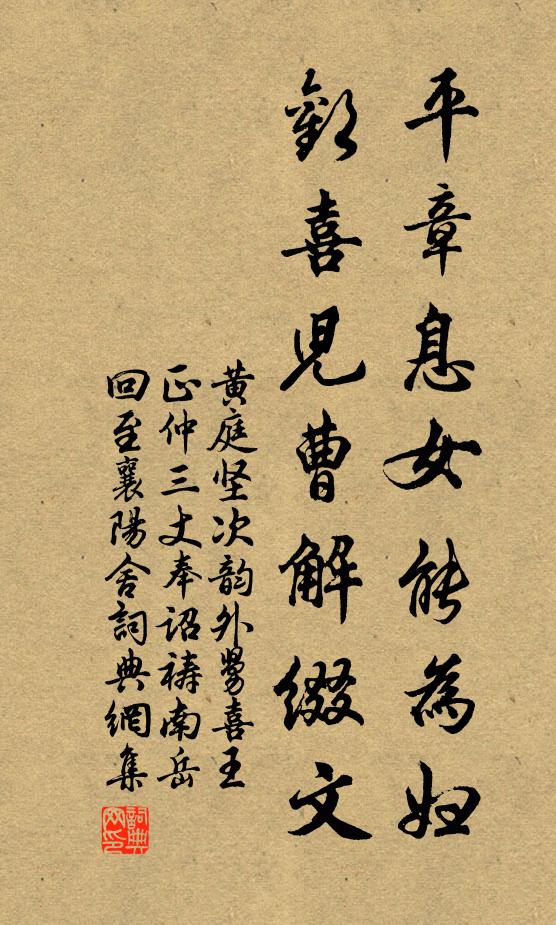 平章息女能為婦
歡喜兒曹解綴文
黄庭坚次韵外舅喜王
正仲三丈奉诏禱南岳
回至襄陽舍詞典網集
詞典网印